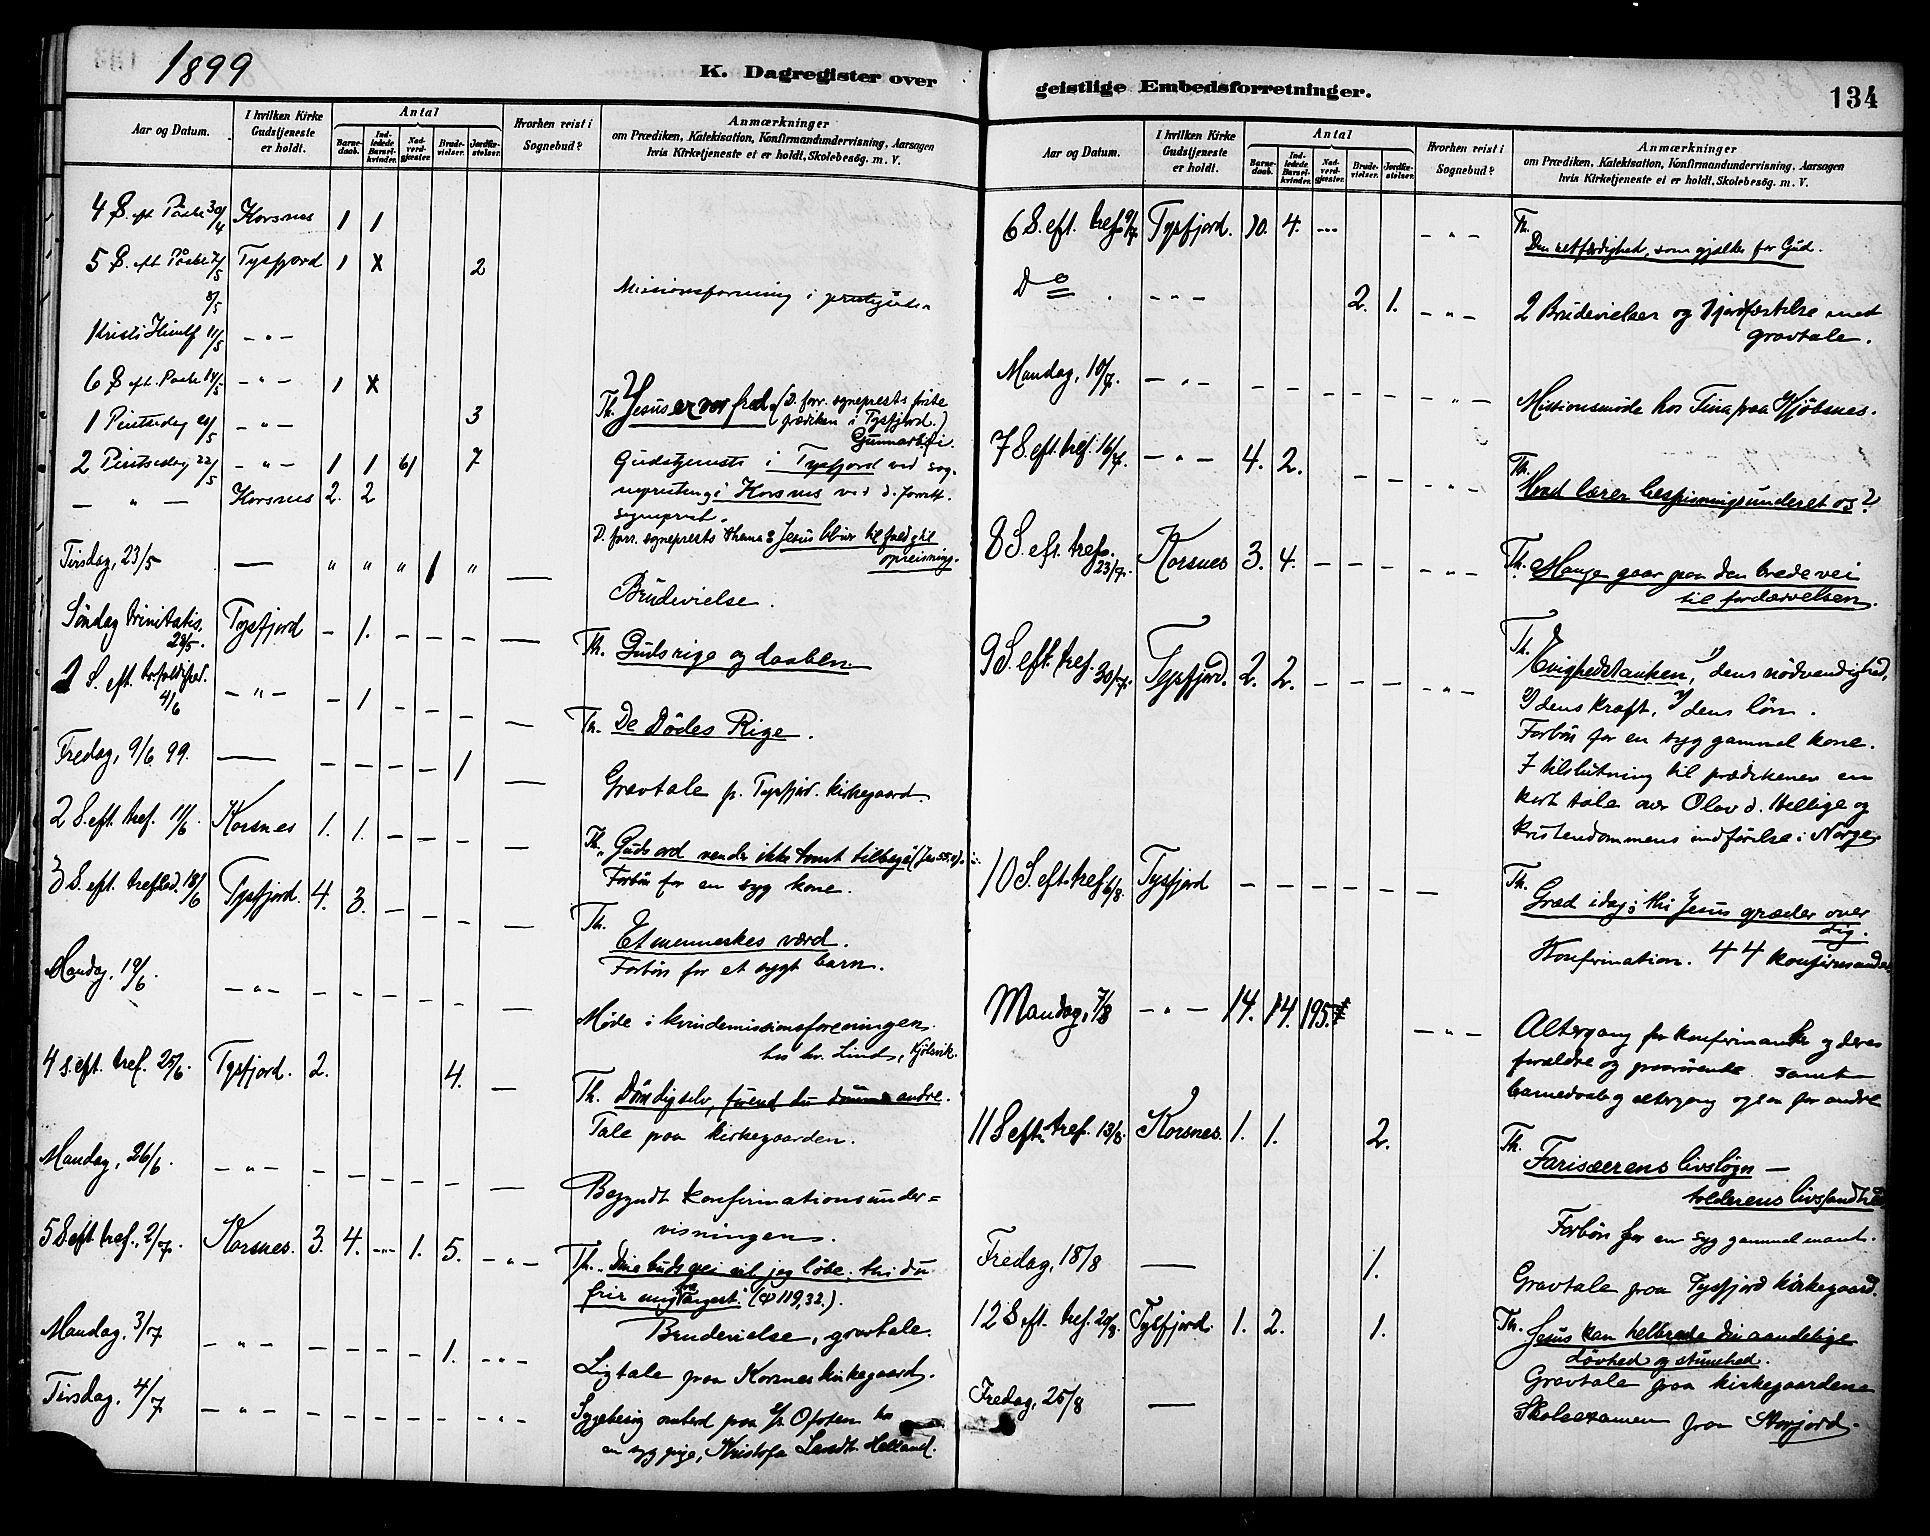 1899
K. Dagregister over
Aar og Datum.
I hvilken Kirke Gudstjeneste er holdt.
Antal
Barnedaab.
Indledede Barselkvinder.
Nadverdgjester
Brudevielser.
Jordfæstelser.
Hvorhen reist i Sognebud?
Anmærkninger
om Prædiken, Katekisation, Konfirmandundervisning, Aarsagen
hvis Kirketjeneste ei er holdt, Skolebesög. m. V.
4 S. eft Påske 30/4 Korsnes 1 1
5 S. eft Påske 7/5 Tysfjord 1 x 2
8/5 Missionsforening i
Kristi Himlf 11/5 - " -
6 S eft. Paske 14/5 - " - 1 x
1 Pintsedag 21/5 - " - 3 Th. Jesus er vor fred. (D. forr. sogneprests første
prædiken i Tysfjord.)
2 Pintsedag 22/5 - " - 1 1 61 7 Gudstjeneste i Tysfjord ved sog-
— " — Korsnes 2. 2 nepresten, i Korsnes ved d. forrett.
sogneprest.
D. forr. sogneprests thema: Jesus bliver til fald og til
opreisning.
Tirsdag, 23/5 — " " " 1 " — Brudevielse.
Søndag trinitatis. 28/5. Tysfjord - 1. - - - — Th. Guds rige og daaben
1 S. eft. trefoldighed. 4/6 - " - - 1 - - - — Th. De Dødes Rige.
Fredag, 9/6 99. — - - - - 1 — Gravtale p. Tysfjor. kirkegaard.
2 S. eft. tref. 11/6. Korsnes 1. 1. - - - — Th. "Guds ord vender ikke tomt tilbage" (Jes 55.)
Forbøn for en syg kone.
3 S. eft. trefold. 18/6 Tysfjord. 4. 3. - - - — Th. Et menneskes værd.
Forbøn for et sygt barn.
Mandag, 19/6. - " - - - - - - — Møde i kvindemissionsforeningen
hos hr. Lind, Kjølsvik.
4 S. eft. tref. 25/6. Tysfjord. 2. 4. — Th. Døm dig selv, førend du dømme andre.
Tale paa kirkegaarden.
Mandag, 26/6. - " - - - - - - — Begyndt konfirmationsunder=
visningen.
5 S eft. tref., 2/7. Korsnes. 3. 4. -"- 1. 5. - " - Th. "Dine buds vei vil jeg løbe; thi du
frir mig fra angest." (ψ 119,32.).
Brudevielse, gravtale.
Mandag, 3/7 - " - - - - - 1. - " - Ligtale paa Korsnes kirkegaard.
Tirsdag, 4/7 - " - - - - - - - " - Sygebesøg ombord paa s/s Ofoten hos
en syg pige, Kristofa Helland.
geistlige Embedsforretninger.
134
Aar og Datum.
I hvilken Kirke Gudstjeneste er holdt.
Antal
Barnedaab.
Indledede Barselkvinder.
Nadverdgjester.
Brudevielser.
Jordfæstelser.
Hvorhen reist i Sognebud?
Anmærkninger
om Prædiken, Katekisation, Konfirmandundervisning, Aarsagen
hvis Kirketjeneste ei er holdt, Skolebesög. m. V.
6 S. eft. tref. 9/7. Tysfjord. 10. 4. --- - " - Th. Den retfærdighed, som gjælder for Gud.
Do. - " - 2. 1. - " - 2 Brudevielser og 1 jordfæstelse med
gravtale.
Mandag, 10/7. - " - - - - - - - " - Missionsmøde hos Tina paa Kjøbsnes.
7 S. eft. tref. 16/7. - " - 4. 2. - - - - " - Th. Hvad lærer bespisningsunderet os?
8 S. eft. tref. 23/7. Korsnes 3. 4. - - - - " - Th. Mange gaar paa den brede vei
til fordærvelsen.
9 S. eft. tref. 30/7. Tysfjord. 2. 2. - - - - " - Th. Evighedstanken, 1) dens nødvendighed,
2) dens kraft, 3) dens løn.
Forbøn for en syg gammel kone.
I tilslutning til prædikenen en
kort tale over Olav d. Hellige og
kristendommens indførelse i Norge.
10 S. eft. tref. 6/8. Tysfjord - - - - - — Th. Græd idag; thi Jesus græder over
dig.
Konfirmation. 44 konfirmander
Mandag, 7/8 - " - 14. 14. 195. - " - Altergang for konfirmander og deres
forældre og paarørende samt
barnedaab og altergang ogsaa for andre
11 S eft. tref. 13/8. Korsnes. 1. 1. 2. Th. Farisæerens livsløgn —
tolderens livssandhed
Forbøn for en syg gammel mand.
Fredag, 18/8 — 1. Gravtale paa Tysfjord kirkegaard.
12 S eft. tref. 20/8. Tysfjord. 1. 2. 1. Th. Jesus kan helbrede din aandelige
døvhed og stumhed.
Gravtale paa kirkegaarden
Fredag, 25/8 — Skoleexamen paa Storjord.